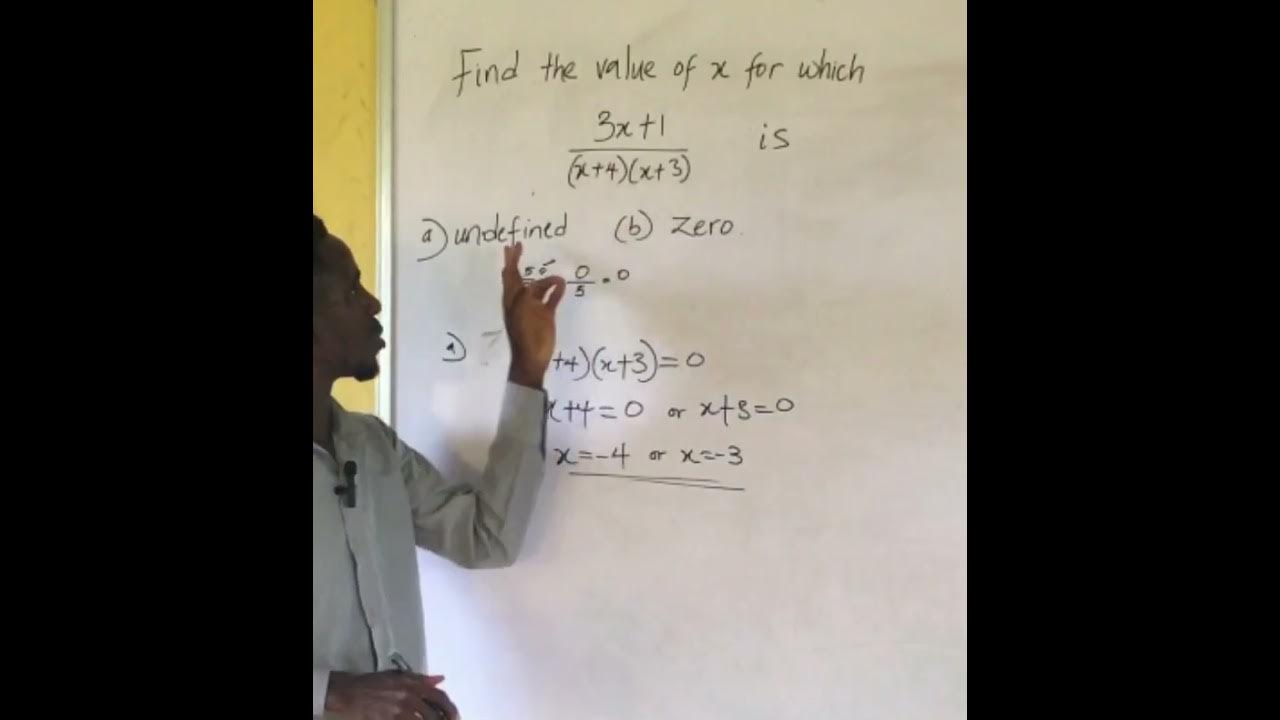 Find the value of x for which
3x+1
(x+4)(x+3)
is
a) undefined (b) Zero.
0/5 = 0
a) +4)(x+3)=0
x+4=0 or x+3=0
x=-4 or x=-3